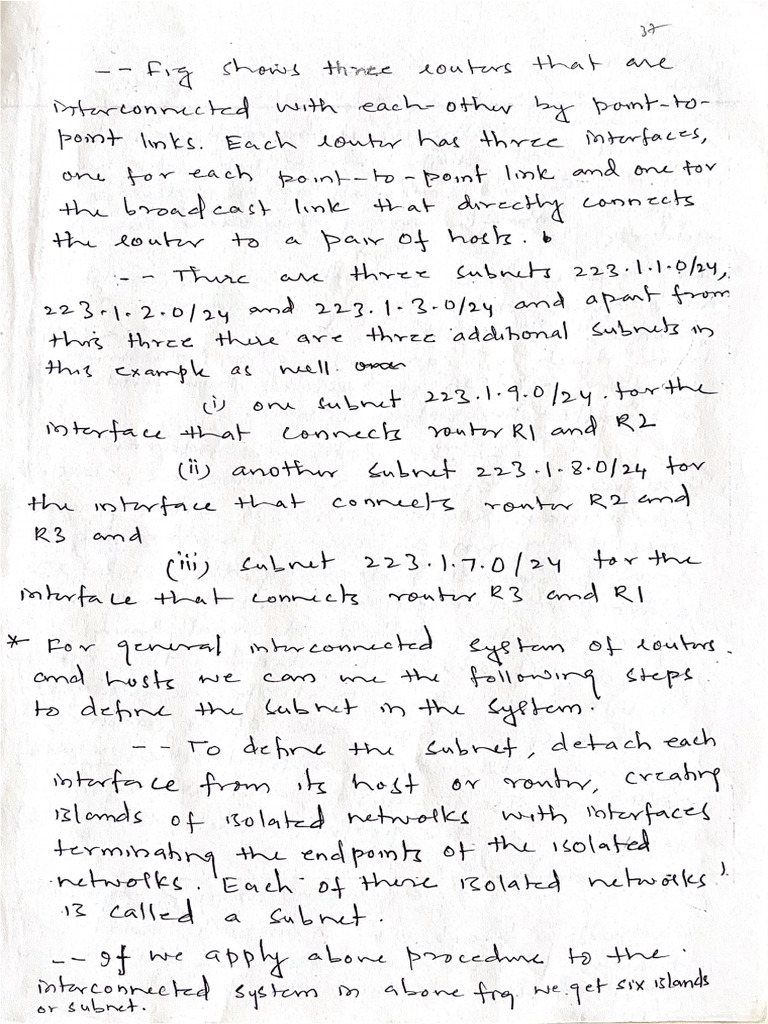 37
-- Fig shows three routers that are
interconnected with each-other by point-to-
point links. Each router has three interfaces,
one for each point-to-point link and one for
the broadcast link that directly connects
the router to a pair of hosts.
-- There are three subnets 223.1.1.0/24,
223.1.2.0/24 and 223.1.3.0/24 and apart from
this three there are three additional subnets in
this example as well.
(i) one subnet 223.1.9.0/24. for the
interface that connects router R1 and R2
(ii) another subnet 223.1.8.0/24 for
the interface that connects router R2 and
R3 and
(iii) subnet 223.1.7.0/24 for the
interface that connects router R3 and R1
* For general interconnected system of routers
and hosts we can use the following steps
to define the subnet in the system.
-- To define the subnet, detach each
interface from its host or router, creating
islands of isolated networks with interfaces
terminating the endpoints of the isolated
networks. Each of these isolated networks
is called a subnet.
-- If we apply above procedure to the
interconnected system in above fig we get six islands
or subnet.